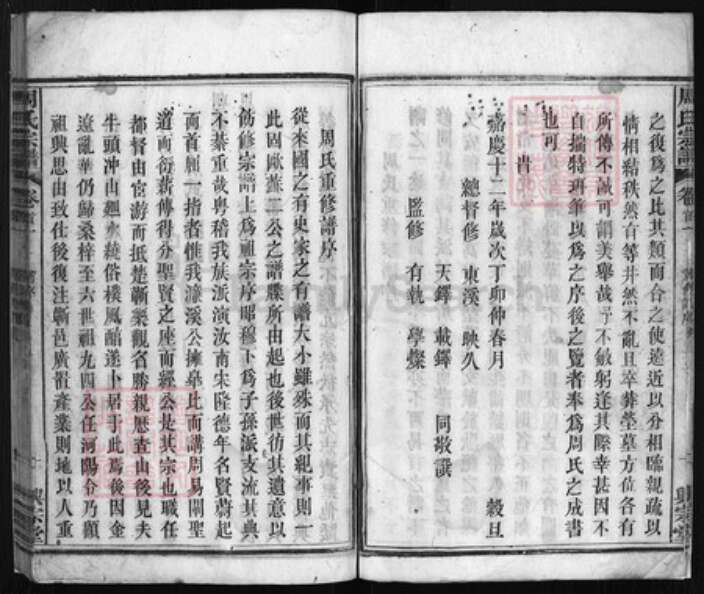 之後爲之比其類而合之使遠近以分相臨親疏以
情相結秩然有等井然不亂且卒葬塋墓方位各有
所傳不誠可謂美舉哉予不敏躬逢其際幸甚因不
自揣特班筆以爲之序後之覽者奉爲周氏之成書
也可
皆
嘉慶十二年歲次丁卯仲春月 穀旦
總督修 東溪 映久
天鐸 載鐸 同敬譔
監修 有執 學燦
周氏重修譜序
從來國之有史家之有譜大小雖殊而其紀事則一
此因歐蘇二公之譜牒所由起也後世彷其遺意以
飭修宗譜上爲祖宗序昭穆下爲子孫派支流其典
不綦重哉粵稽我族派演汝南宋隆德年名賢蔚起
而首屈一指者惟我濂溪公擁皋比而講周易闡聖
道而衍薪傳得分聖賢之座而經公是其宗也職任
都督由宦游而抵楚蘄槼觀名勝親歷查山後見夫
牛頭冲山廻水繞俗樸風醕遂卜居于此爲後因金
遼亂華仍歸桑梓至六世祖九四公任河陽令乃顧
祖興思由致仕後復注蘄邑廣置產業則地以人重
周氏宗譜
卷首一
周氏宗譜
卷首一
興宗堂
FamilySearch